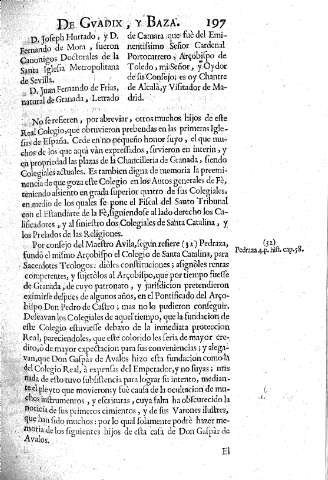 DE GVADIX, Y BAZA. 197
D. Joseph Hurtado, y D.
Fernando de Mora, fueron
Canonigos Doctorales de la
Santa Iglesia Metropolitana
de Sevilla.
D. Juan Fernando de Frias,
natural de Granada, Letrado
de Camara que fuè del Emi-
nentissimo Señor Cardenal
Portocarrero, Arçobispo de
Toledo, mi Señor, y Oydor
de su Consejo: es oy Chantre
de Alcalà, y Visitador de Ma-
drid.
No se refieren, por abreviar, otros muchos hijos de este
Real Colegio, que obtuvieron prebendas en las primeras Igle-
sias de España. Cede en no pequeño honor suyo, el que mu-
chos de los que aqui vàn expressados, sirvieron en interin, y
en propriedad las plazas de la Chancilleria de Granada, siendo
Colegiales actuales. Es tambien digna de memoria la preemi-
nencia de que goza este Colegio en los Autos generales de Fè,
teniendo assiento en grada superior quatro de sus Colegiales,
en medio de los quales se pone el Fiscal del Santo Tribunal
con el Estandarte de la Fè, siguiendose al lado derecho los Ca-
lificadores, y al siniestro dos Colegiales de Santa Catalina, y
los Prelados de las Religiones.
Por consejo del Maestro Avila, segun refiere (32) Pedraza,
fundò el mismo Arçobispo el Colegio de Santa Catalina, para
Sacerdotes Teologos: diòles constituciones; asignòles rentas
competentes, y sujetòlos al Arçobispo, que por tiempo fuesse
de Granada, de cuyo patronato, y jurisdicion pretendieron
eximirse despues de algunos años, en el Pontificado del Arço-
bispo Don Pedro de Castro; mas no lo pudieron conseguir.
Deseavan los Colegiales de aquel tiempo, que la fundacion de
este Colegio estuviesse debaxo de la inmediata proteccion
Real, pareciendoles, que este colorido les seria de mayor cre-
dito, ò de mayor expectacion para sus conveniencias; y alega-
van, que Don Gaspar de Avalos hizo esta fundacion como la
del Colegio Real, à expensas del Emperador, y no suyas;
nada de esto tuvo subsistencia para lograr su intento, median-
te el pleyto que movieron; y fuè causa de la ocultacion de mu-
chos instrumentos, y escrituras, cuya falta ha obscurecido la
noticia de sus primeros cimientos, y de sus Varones ilustres,
que han sido muchos: por lo qual solamente podrè hazer me-
moria de los siguientes hijos de esta casa de Don Gaspar de
Avalos.
El
(32)
Pedraza 4. p. hist. cap. 58.